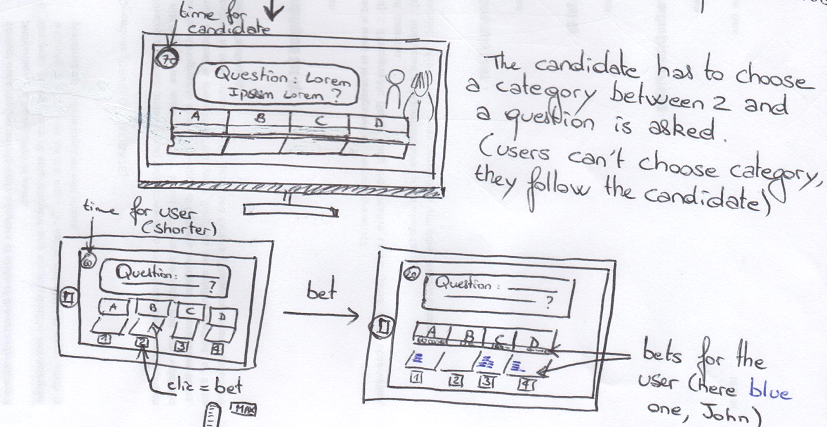 time for
candidate
70
Question : Lorem
Ipsum Lorem ?
A B C D
The candidate has to choose
a category between 2 and
a question is asked.
(users can't choose category,
they follow the candidate)
time for user
(shorter)
60
Question :
?
A B C D
1 2 3 4
clic = bet
MAX
bet
Question :
?
A B C D
1 2 3 4
bets for the
user (here blue
one, John)